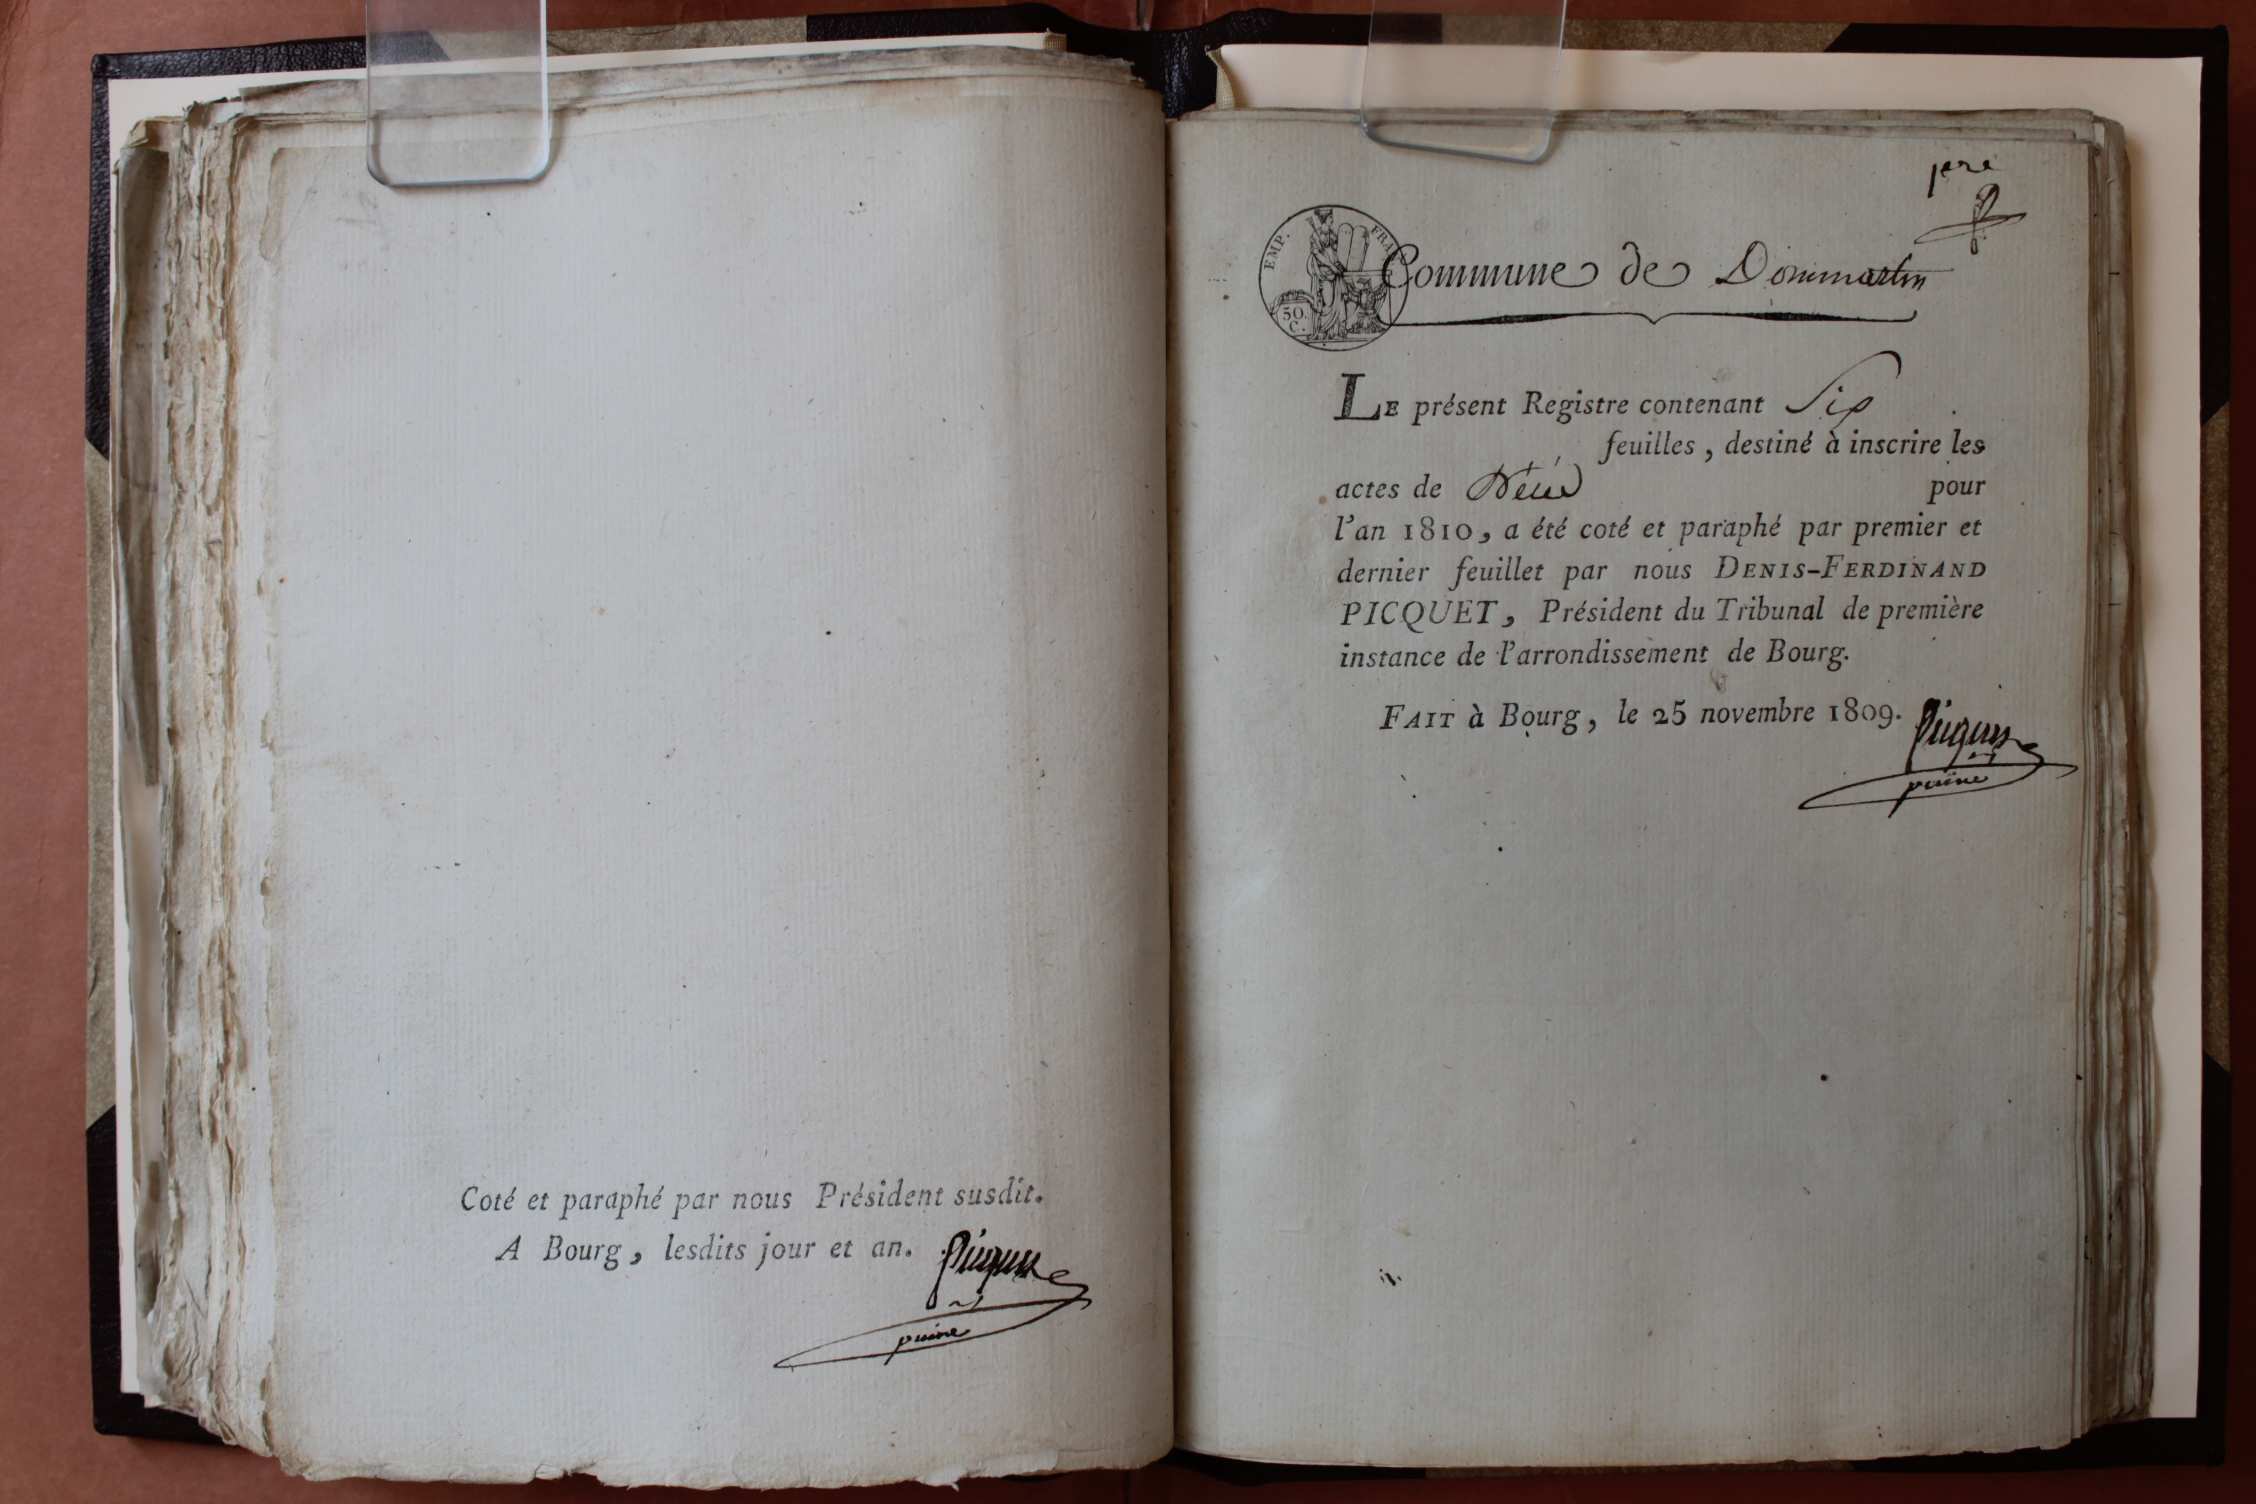 Coté et paraphé par nous Président susdit.
A Bourg, lesdits jour et an. Picquet
puiné
1ere
EMP. FRA
50.
C.
Commune de Dommartin
LE présent Registre contenant Six
feuilles, destiné à inscrire les
actes de Décès pour
l'an 1810, a été coté et paraphé par premier et
dernier feuillet par nous DENIS-FERDINAND
PICQUET, Président du Tribunal de première
instance de l'arrondissement de Bourg.
FAIT à Bourg, le 25 novembre 1809. Picquet
puiné